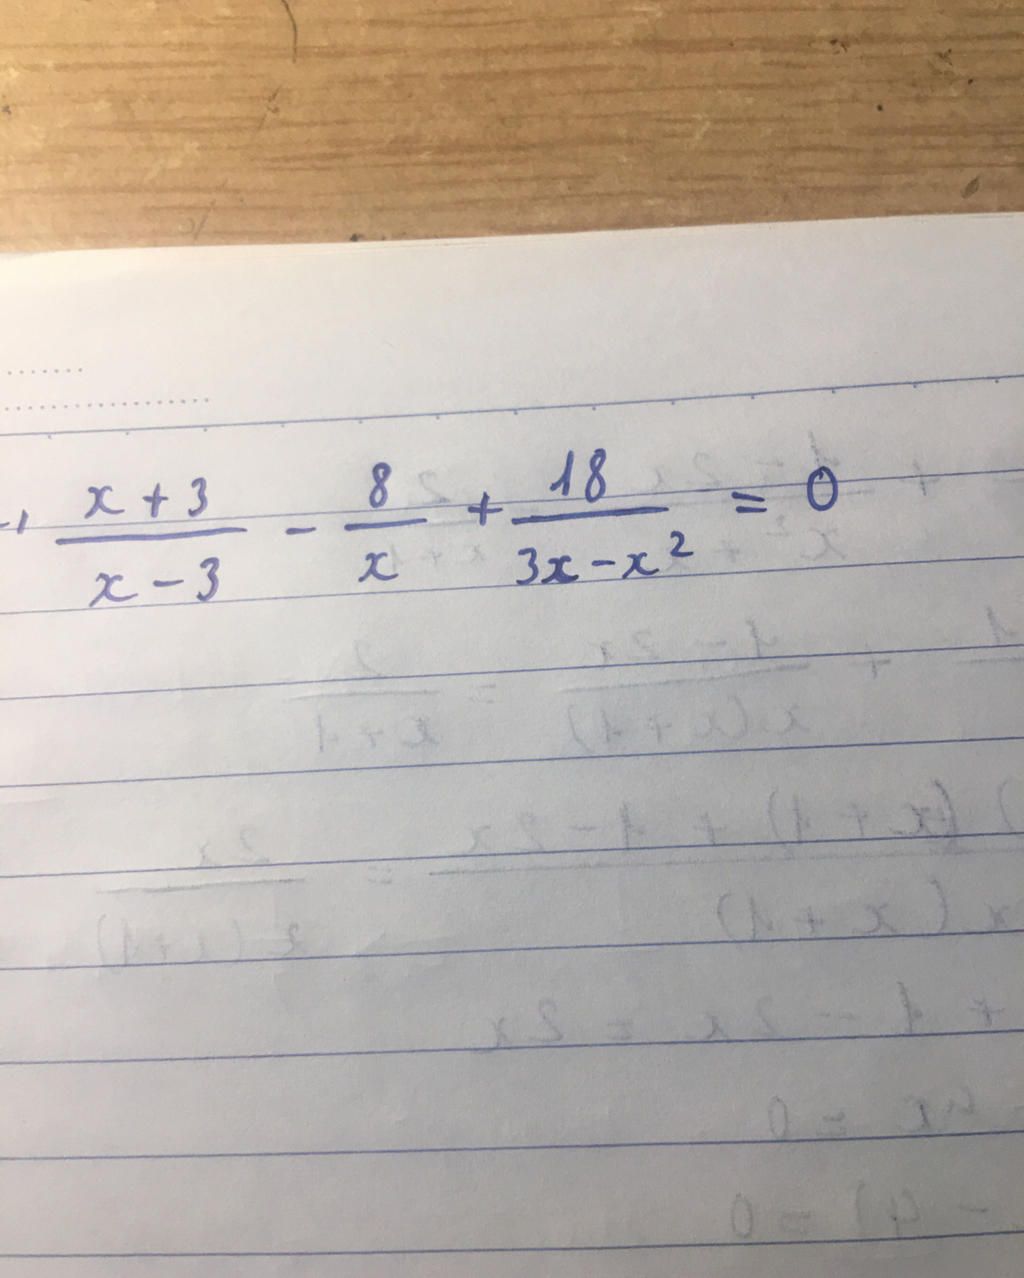 \frac{x+3}{x-3} - \frac{8}{x} + \frac{18}{3x-x^2} = 0